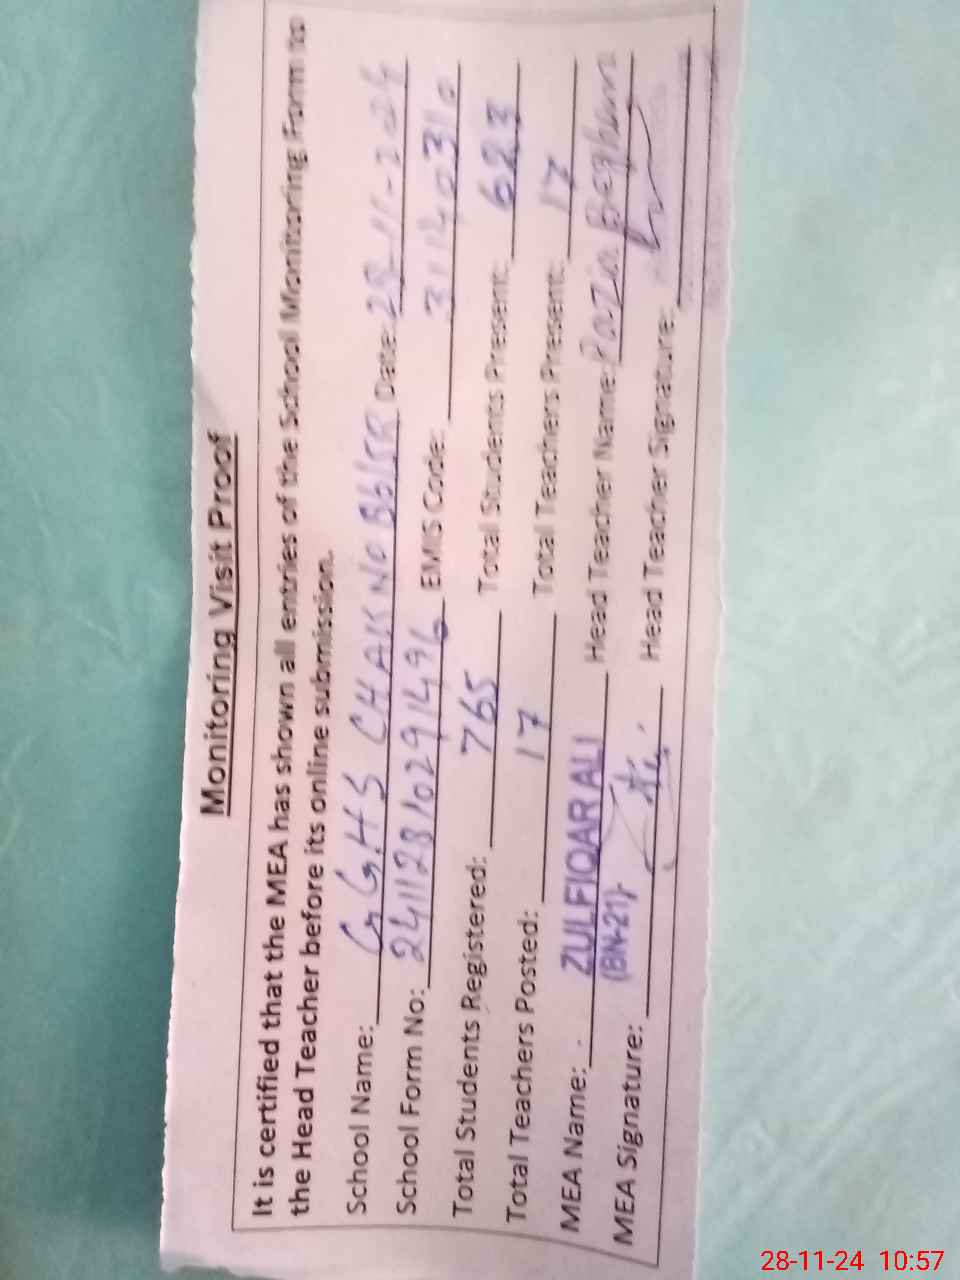 Monitoring Visit Proof
It is certified that the MEA has shown all entries of the School Monitoring Form to
the Head Teacher before its online submission.
School Name: GGHS CHAK NO Date: 28-11-2024
School Form No: 241128102914996 EMIS Code: 31140310
Total Students Registered: 765 Total Students Present: 623
Total Teachers Posted: 17 Total Teachers Present: 17
MEA Name: ZULFIQAR ALI Head Teacher Name:
(BN-21)
MEA Signature: Head Teacher Signature:
28-11-24 10:57